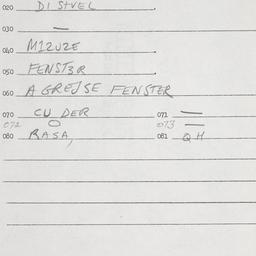 020 DISTVEL
030 —
040 M12UZE
050 FENST3R
060 A GREJSE FENSTER
070 CU DER 071 —
072 O 073 —
080 RASA, 081 QH